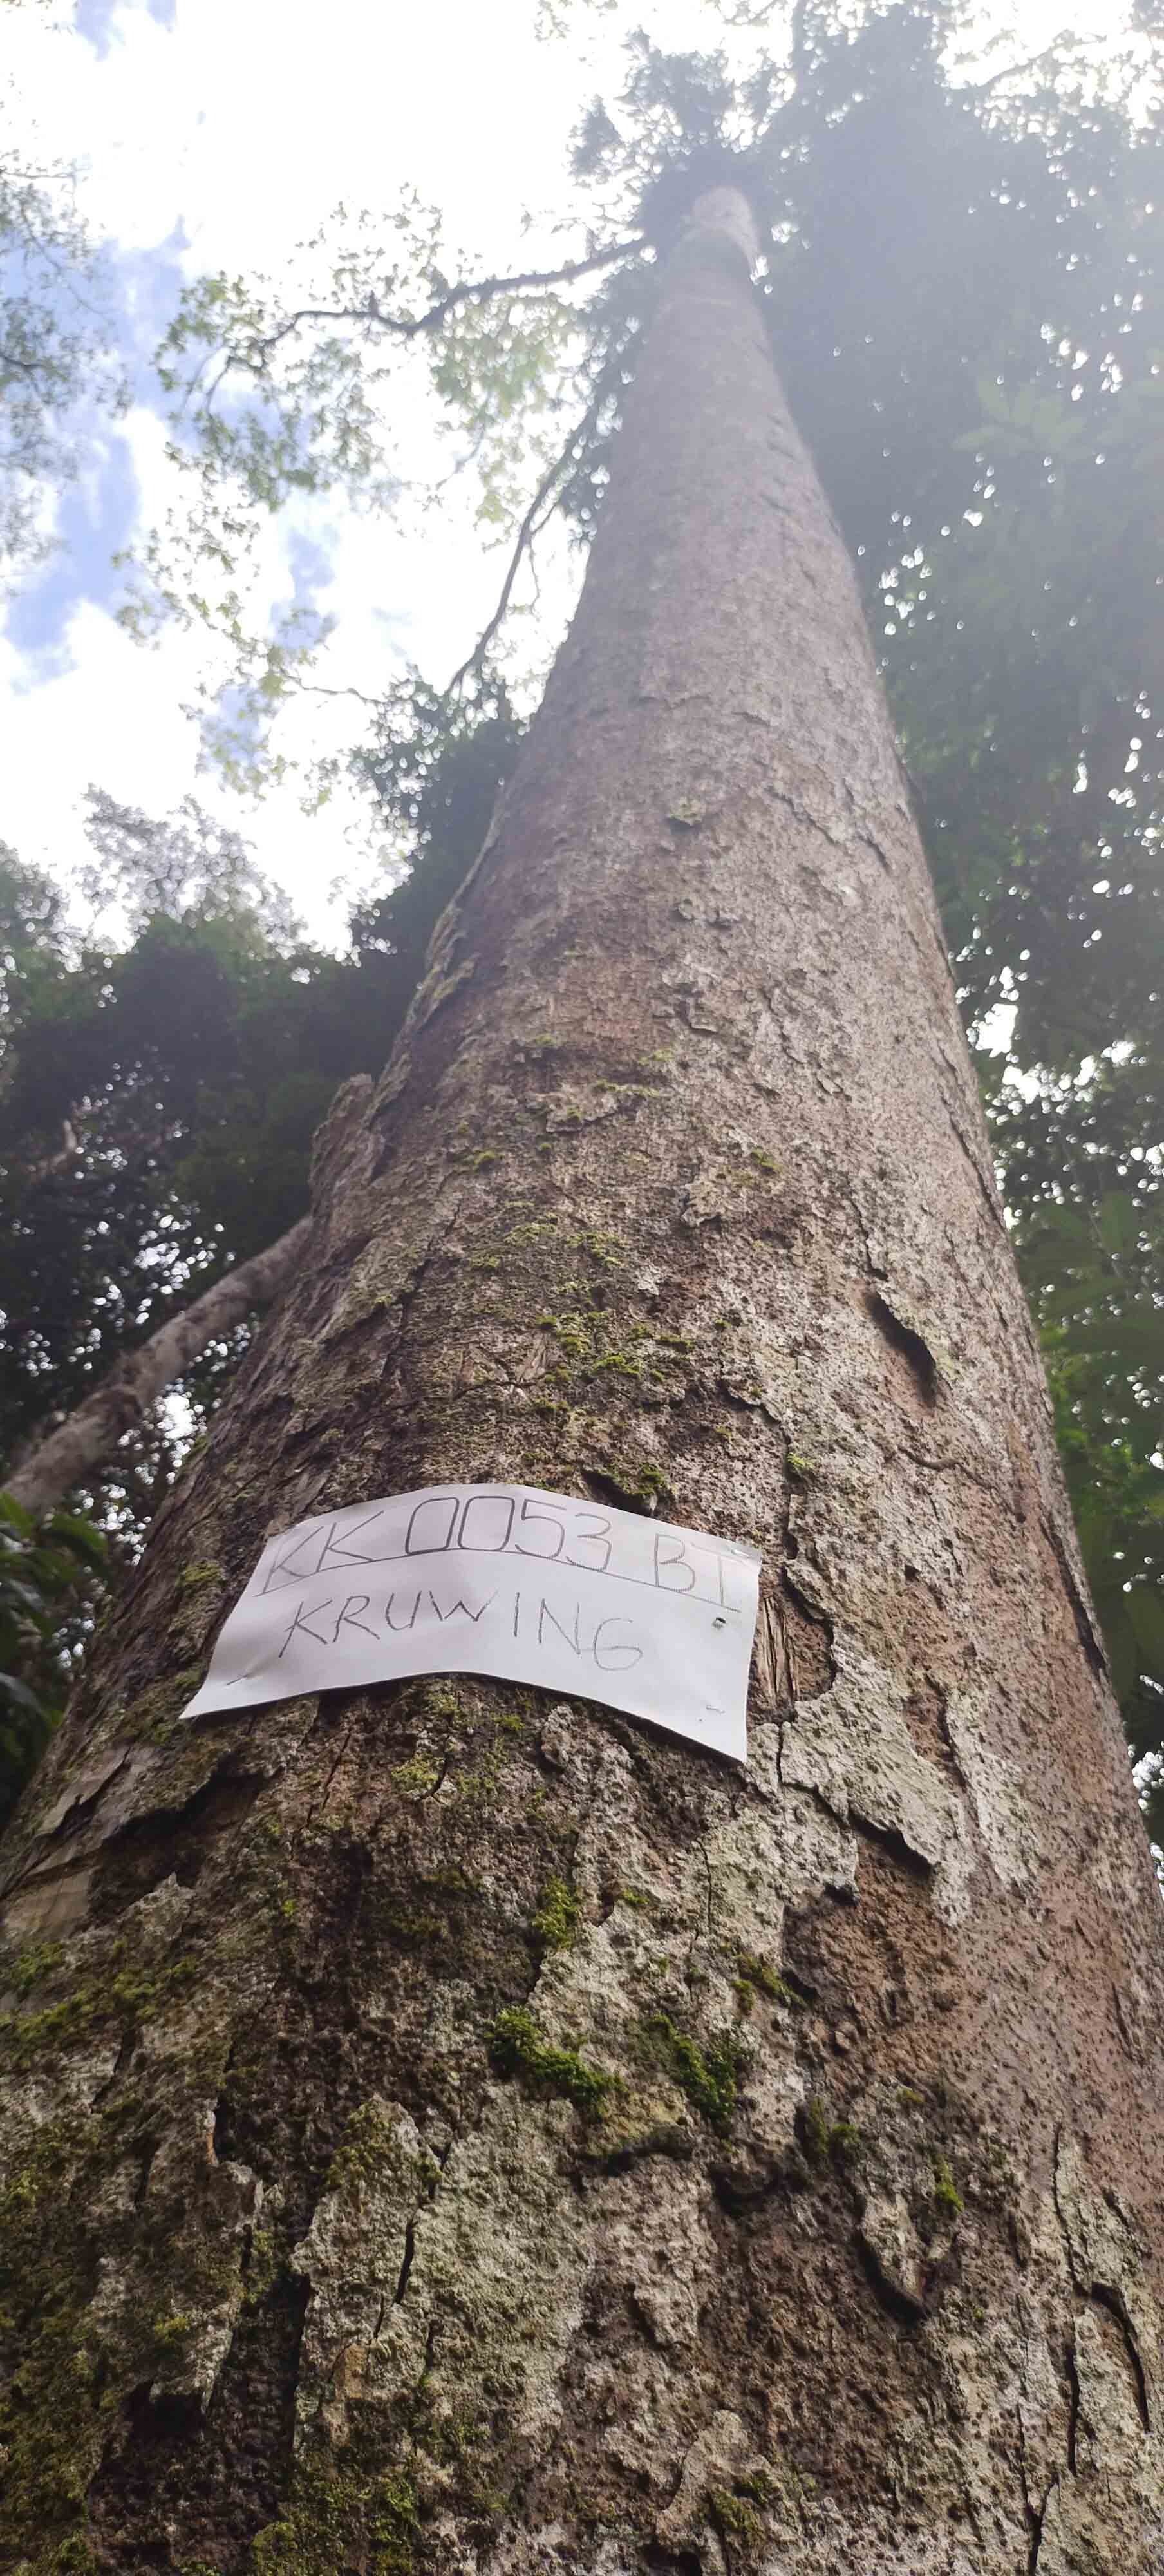 KK 0053 BT
KRUWING